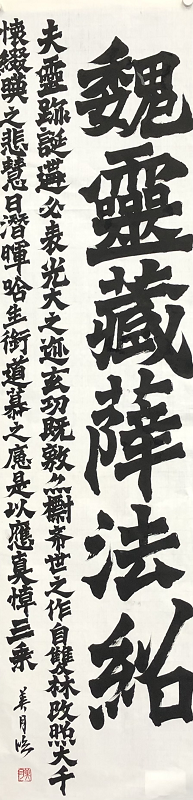 魏靈藏薛法紹
夫靈跡誕遘必表光大之迹玄功既敷亦標希世之作自雙林改照大千
懷綴暎之悲慧日潛暉哈生銜道慕之應是以應真悼三乘
美月臨